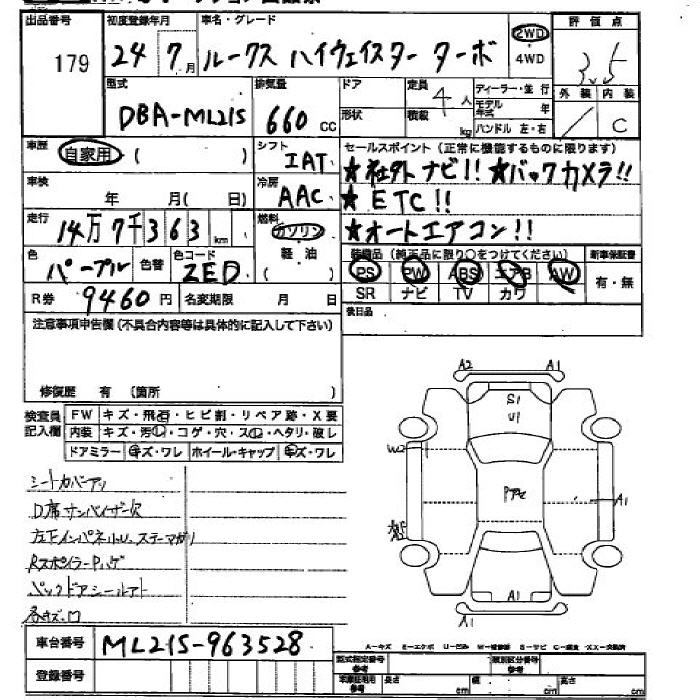 出品番号 初度登録年月 車名・グレード 評価点
179 24年 7月 ルークス ハイウェイスター ターボ 2WD ・ 4WD 3.5
型式 排気量 ドア 定員 ディーラー・並行 外装 内装
DBA-ML21S 660cc 形状 4人 積載 kg モデル年式 年 ハンドル 左・右 / C
車歴 自家用 ( ) シフト IAT セールスポイント (正常に機能するものに限ります)
★社外ナビ!! ★バックカメラ!!
車検 年 月( 日) 冷房 AAC ★ETC!!
走行 14万7千363km 燃料 ガソリン ★オートエアコン!!
色 パープル 色替 色コード ZED 軽油 ( )
装備品 (純正品に限り○をつけてください) 新車保証書
PS PW ABS エアB AW 有・無
SR ナビ TV カワ
R券 9460円 名変期限 月 日 後日品
注意事項申告欄 (不具合内容等は具体的に記入して下さい)
修復歴 有 (箇所 )
検査員記入欄 FW キズ・飛石・ヒビ割・リペア跡・X要
内装 キズ・汚れ・コゲ・穴・スレ・ヘタリ・破レ
ドアミラー キズ・ワレ ホイール・キャップ キズ・ワレ
シートカバーアリ
D席サンバイザー欠
バックドアシールアト
A2 A1
S1
U1
W2
A1
A1
A1
車台番号 ML21S-963528
登録番号 型式指定番号 参考 類別区分番号 参考
車庫証明用参考 長さ cm 幅 cm 高さ cm